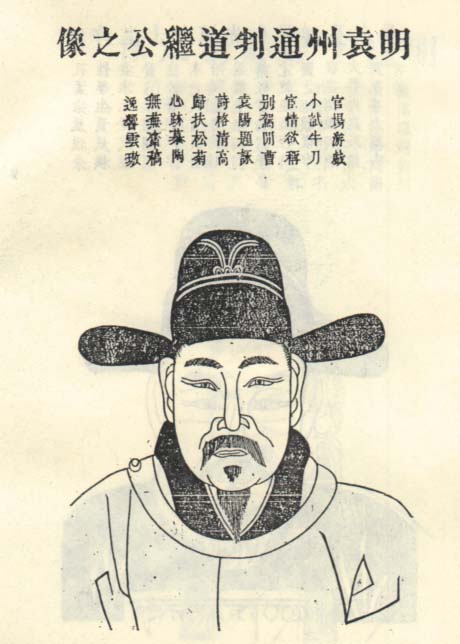 明袁州通判道繼公之像
官場游戲
小試牛刀
宦情欲稱
別駕閒曹
袁陽題詠
詩格清高
歸扶松菊
心跡慕陶
無蕪齋稿
逸響雲璈